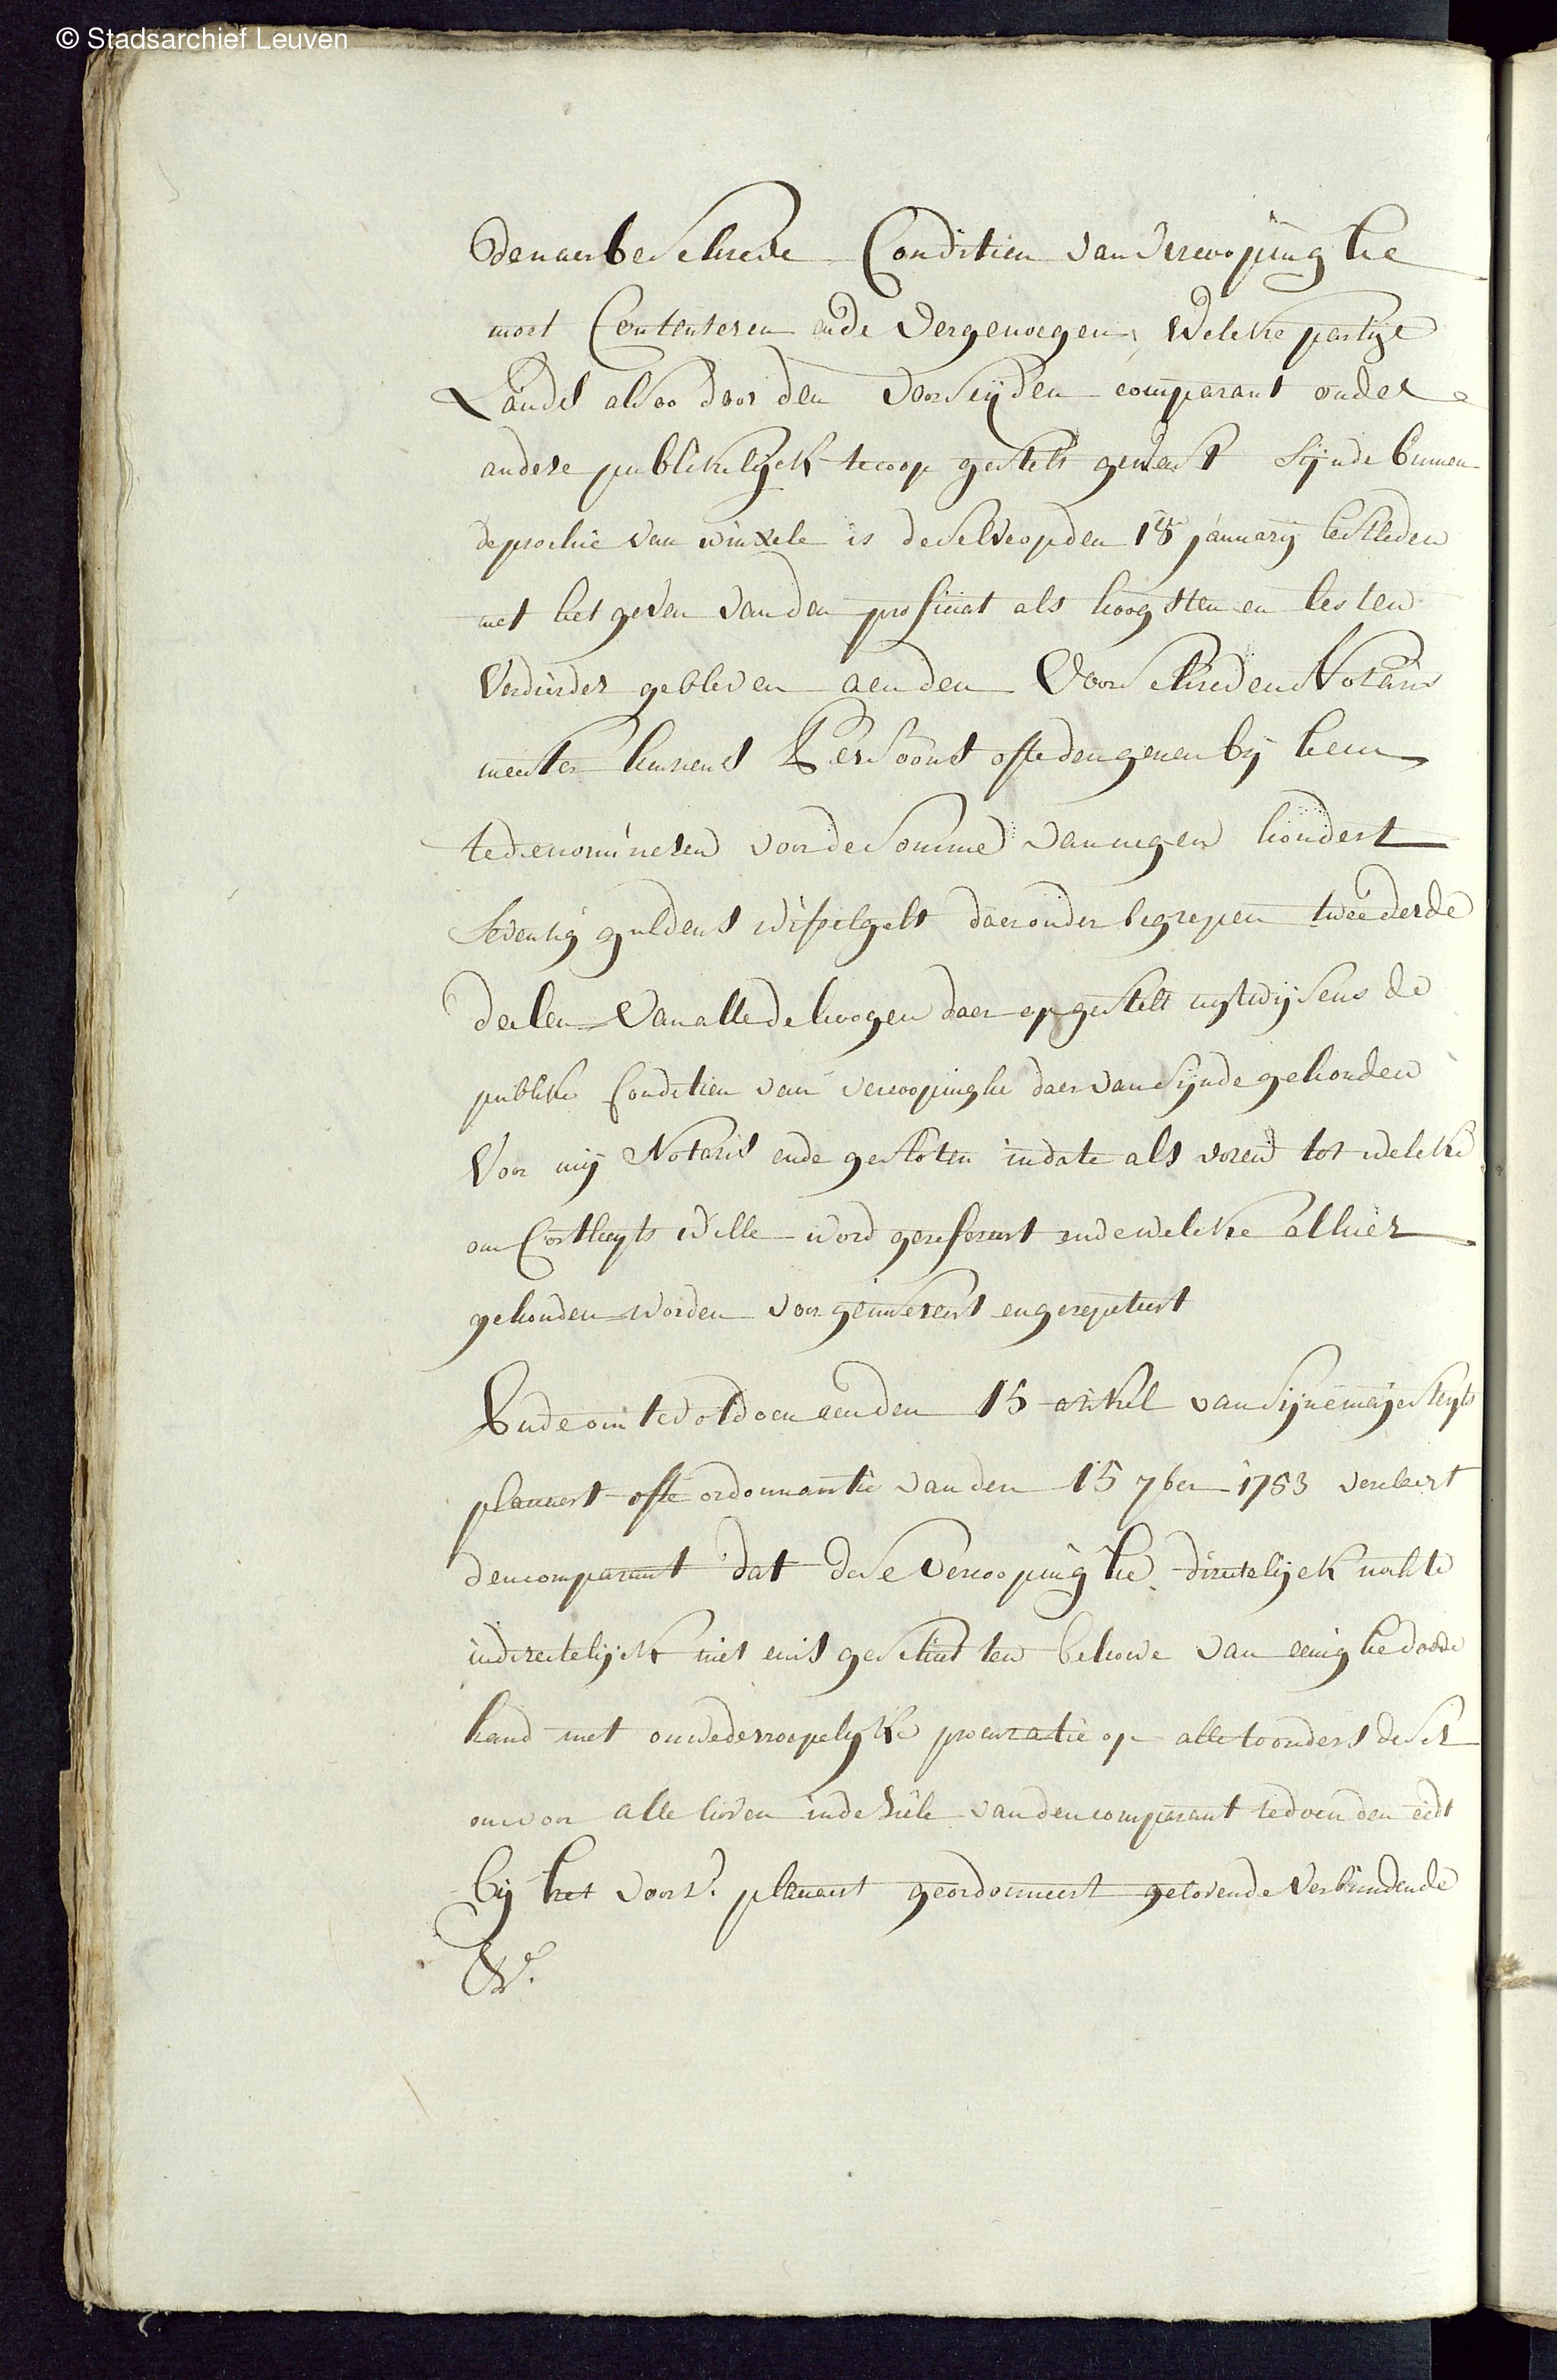 © Stadsarchief Leuven
de naerbeschreve Conditien van vercoopinghe
moet Contenteren ende vergenoegen, Welcke partije
Lands alsoo door den voorseijden comparant onder
andere publikelijck te coop gestelt geweest sijnde binnen
de prochie van winxele is deselve op den 18 januarij lestleden
met het geven van den proficiat als hoogsten en lesten
verdierder gebleven aen den Voorschreden Notaris
meester kennens Persoons ofte dengenen bij hem
te denomineren voor de somme van negen hondert
seventig guldens wisselgelt daeronder begrepen twee derde
deelen van alle de hoogen daer op gestelt uijtwijsens de
publicke Conditien van vercoopinghe daer van sijnde gehouden
Voor mij Notaris ende gesloten in date als voren tot welcke
om Cortheyts wille word gerefereert ende welcke alhier
gehouden worden voor geinsereert en gerepeteert
Ende om te voldoen aen den 15 artikel van sijne majesteyts
placcaert ofte ordonnantie van den 15 7ber 1753 verclaert
den comparant dat dese Vercoopinghe directelijck nochte
indirectelijck niet en is geschiet ten behoeve van eenighe doode
hand met onwederroepelijcke procuratie op alle toonders deser
om voor alle hoven in de ziele van den comparant te doen den eedt
bij het voors. placcaert geordonneert gelovende Verbindende
&a.